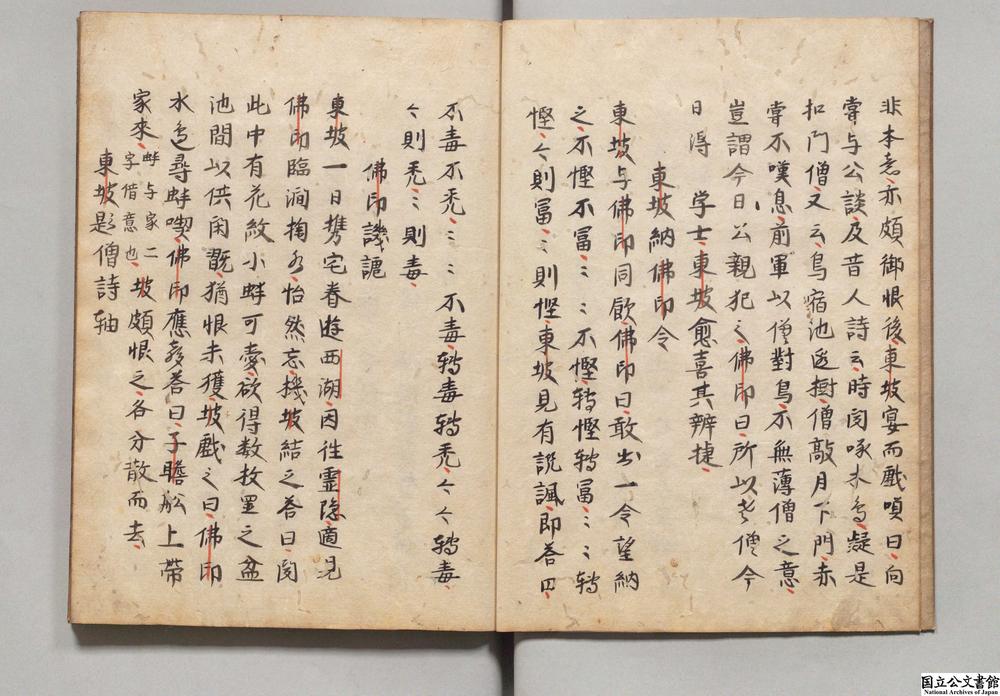 非本意亦頗御恨後東坡宴而戲嗔曰向
嘗与公談及昔人詩云時聞啄木鳥疑是
扣門僧又云鳥宿池邊樹僧敲月下門未
嘗不嘆息前軍以僧對鳥不無薄僧之意
豈謂今日公親犯之佛印曰所以老僧今
日得 学士東坡愈喜其辨捷
東坡納佛印令
東坡与佛印同飲佛印曰敢出一令望納
之不慳不冨〻〻不慳轉慳轉冨〻〻轉
慳〻則冨〻則慳東坡見有譏諷即荅曰
不毒不禿〻〻不毒轉毒轉禿〻〻轉毒
〻則禿〻則毒
佛印譏謔
東坡一日携宅眷遊西湖因往霊隐適見
佛印臨澗掬水怡然忘機坡結之荅曰閔
此中有花紋小蚌可愛欲得数枚置之盆
池間以供閑翫猶恨未獲坡戲之曰佛印
水邉尋蚌喫佛印應聲荅曰子瞻舩上帶
家來
蚌与家二
字借意也
坡頗恨之各分散而去
東坡影僧詩軸
国立公文書館
National Archives of Japan